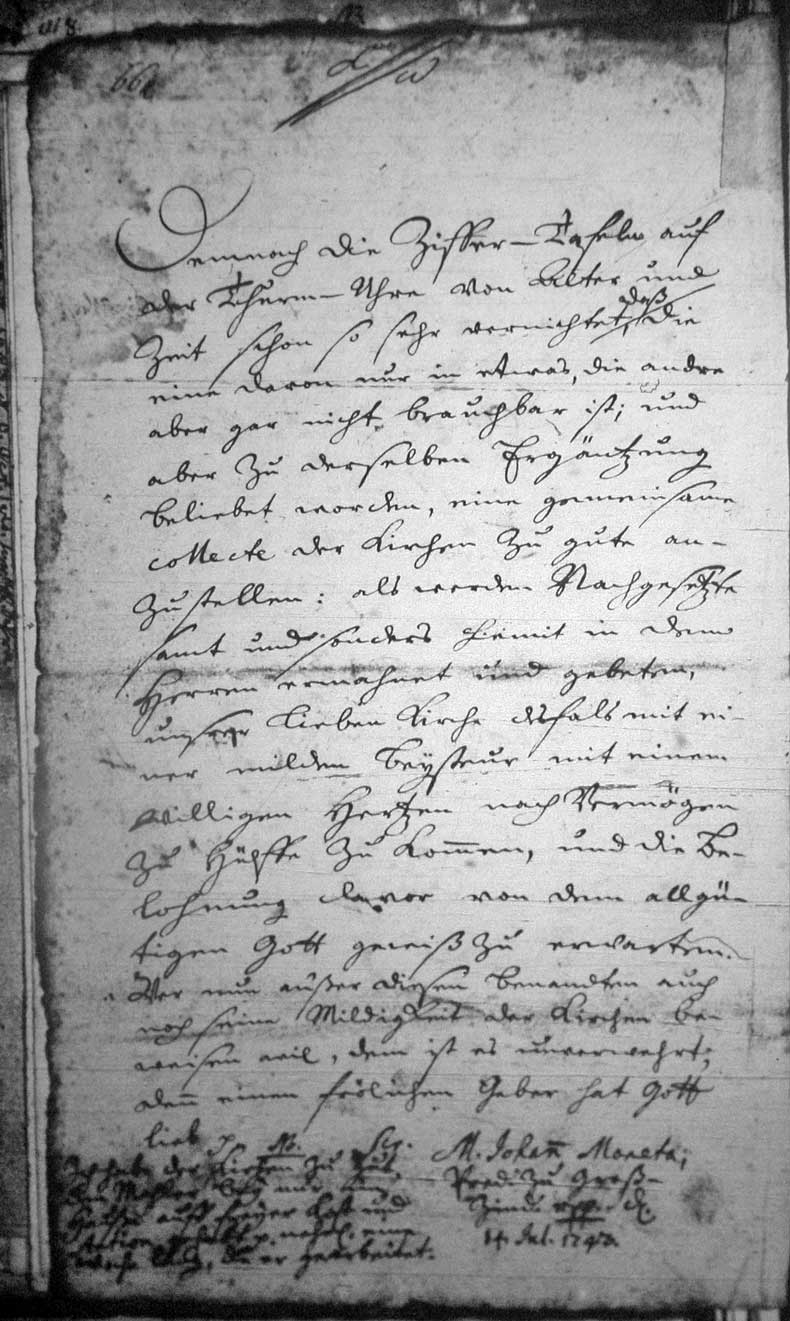 66.
Demnach die Ziffer-Tafeln auf
der Thurm-Uhre von Alter und
Zeit schon so sehr vernichtet, daß die
eine davon nur in etwas, die andre
aber gar nicht brauchbar ist; und
aber zu derselben Ergäntzung
beliebet worden, eine gemeinsame
collecte der Kirchen zu gute an-
zustellen: als werden Nachgesetzte
samt und sonders hiemit in dem
Herren ermahnet und gebeten,
unsrer lieben Kirche desfals mit ei-
ner milden Beysteur mit einem
willigen Hertzen nach Vermögen
zu Hülffe zu kommen, und die Be-
lohnung davor von dem allgü-
tigen Gott gewiß zu erwarten.
Wer nun außer diesen benandten auch
noch seine Mildigkeit der Kirchen be-
weisen wil, dem ist es unverwehrt;
denn einen frölichen Geber hat Gott
lieb p. Scr. M. Johann Moneta;
Pred. zu Groß-
Zünd.
14. Jul.
NB.
Ich habe der Kirchen zu gut
den Mahler bey mir im
Hause auf freyer Kost und
gehabt p.
Woche lang, da er gearbeitet.